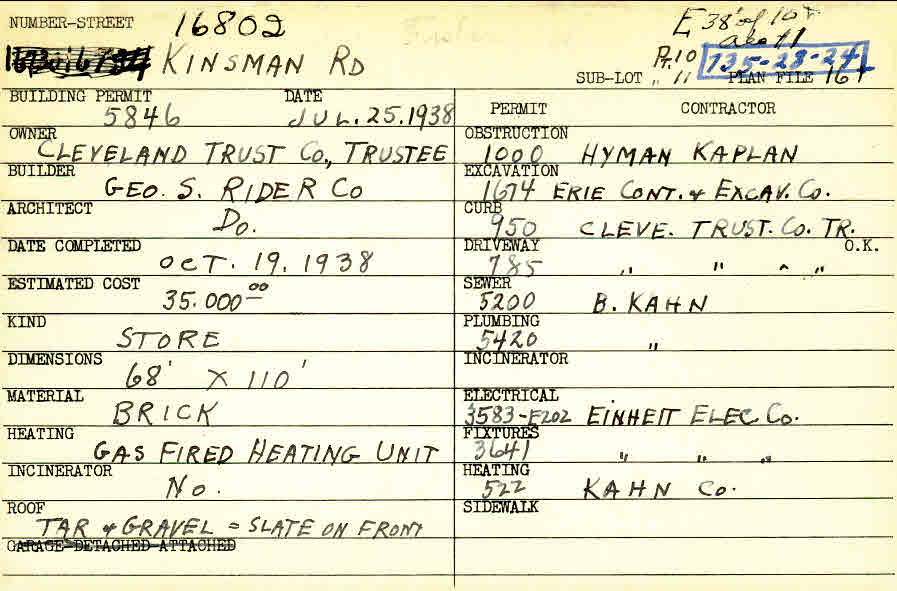 NUMBER-STREET 16802
KINSMAN RD
E 38' of 10 &
Pr. 10 735-28-24
SUB-LOT " 11 PLAN FILE 161
BUILDING PERMIT DATE
5846 JUL. 25. 1938
OWNER
CLEVELAND TRUST CO., TRUSTEE
BUILDER
GEO. S. RIDER CO
ARCHITECT
Do.
DATE COMPLETED
OCT. 19. 1938
ESTIMATED COST
35.000 00
KIND
STORE
DIMENSIONS
68' X 110'
MATERIAL
BRICK
HEATING
GAS FIRED HEATING UNIT
INCINERATOR
No.
ROOF
TAR & GRAVEL = SLATE ON FRONT
GARAGE-DETACHED-ATTACHED
PERMIT CONTRACTOR
OBSTRUCTION
1000 HYMAN KAPLAN
EXCAVATION
1674 ERIE CONT. & EXCAV. CO.
CURB
950 CLEVE. TRUST. CO. TR.
DRIVEWAY O.K.
785 " " " "
SEWER
5200 B. KAHN
PLUMBING
5420 "
INCINERATOR
ELECTRICAL
3583-E202 EINHEIT ELEC CO.
FIXTURES
3641 " " "
HEATING
522 KAHN CO.
SIDEWALK